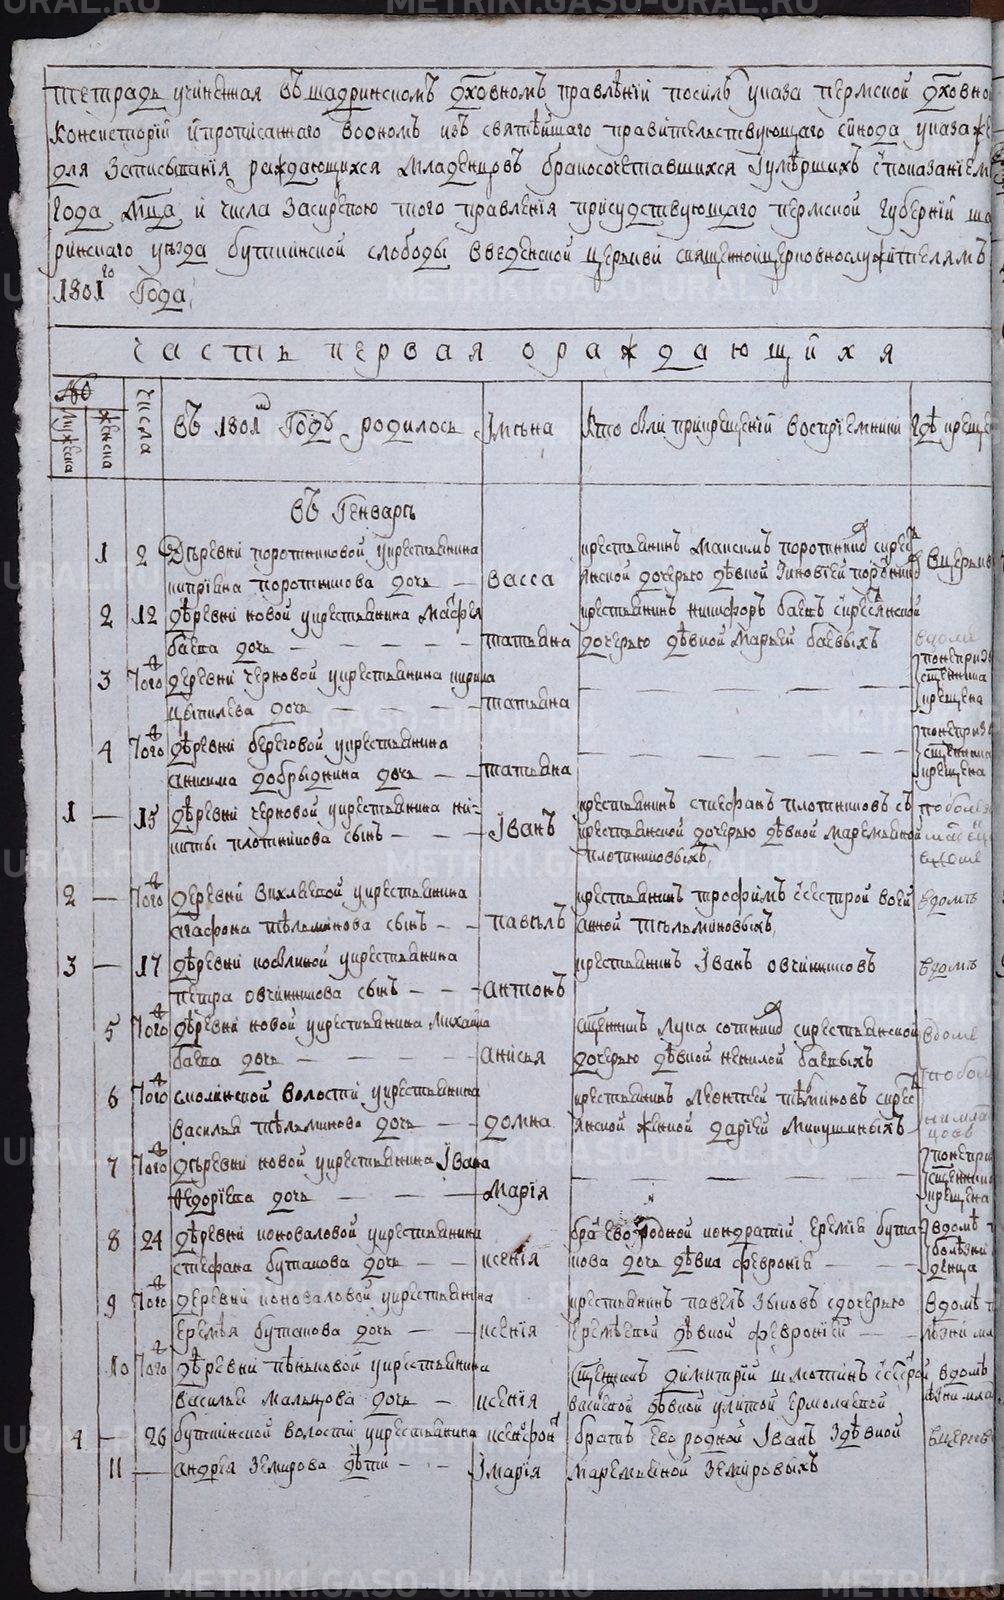 тетрадь учиненная въ шадринскомъ духовномъ правленiи посилѣ указа пермской духовно
консисторiи и прописаннаго во ономъ изъ святѣйшаго правительствующаго синода указа же
для записыванiя раждающихся младенцовъ бракосочетавшихся и умѣршихъ споказанiем
года мца и числа заскрепою того правленiя присудствующаго пермской губернiи ша
ринскаго уѣзда буткинской слободы введенской церькви священноицерковнослужителямъ
1801го Года
часть первая о раждающихся
№
мужеска
женска
числа
въ 1801м Годѣ родилось
Имѣна
Кто были прикрещенiй воспрiемники
Гдѣ креще
въ Генварѣ
1 2 Деревни поротниковой укрестьянина
киприяна поротникова дочь — васса
крестьянинъ максимъ поротников скресть
янской дочерью дѣвкой Зиновiей
вцеркв
2 12 деревни новой укрестьянина
баева дочь — татьяна
крестьянинъ никифоръ баевъ скресьянской
дочерью дѣвкой Марьей баевыхъ
вдоме
3 Того деревни черновой укрестьянина кирила
цыпилева дочь — татьяна
крещена
4 Того деревни береговой укрестьянина
анисима добрыднина дочь — татьяна
крещена
1 — 15 деревни черновой укрестьянина ни-
киты плотникова сынъ — Iванъ
крестьянинъ стефанъ плотниковъ съ
крестьянской дочерью дѣвкой маремьяной
плотниковыхъ
2 — Того деревни вихляевой укрестьянина
агафона тѣльминова сынъ — павелъ
крестьянинъ трофимъ ссестрой воей
анной тельминовыхъ
вдомѣ
3 — 17 деревни кобылиной укрестьянина
петра овчинникова сынъ — антонъ
крестьянинъ Iванъ овчинниковъ
вдомѣ
5 Того деревни новой укрестьянина михаила
баева дочь — анисья
сщенникъ лука сотников скрестьянской
дочерью дѣвкой ненилой баевыхъ
вдоме
6 Того смолинской волости укрестьянина
василья тѣльминова дочь — домна
крестьянинъ леонтей скрест
янской женкой дарiей микушиныхъ
7 Того деревни новой укрестьянина Iвана
Федорѣева дочь — Марiя
крещена
8 24 деревни коноваловой укрестьянина
стефана бутакова дочь — ксенiя
ево родной кондратiй еремѣя бута-
кова дочь дѣвка феврония
вдомѣ
9 Того деревни коноваловой укрестьянина
еремѣя бутакова дочь — ксенiя
крестьянинъ павелъ зыковъ сдочерью
еремѣевой дѣвкой февронiей
вдомѣ
10 Того деревни пѣньковой укрестьянина
василья мальцова дочь — ксенiя
сщенникъ димитрiй шмотинъ
дѣвкой улитой ермолаевой
вдомѣ
4 — 26 буткинской волости укрестьянина ксенофон
11 — андрея земирова дѣти — Iмарiя
братъ ево родной Iванъ Здѣвкой
маремьяной земировыхъ
вцеркв